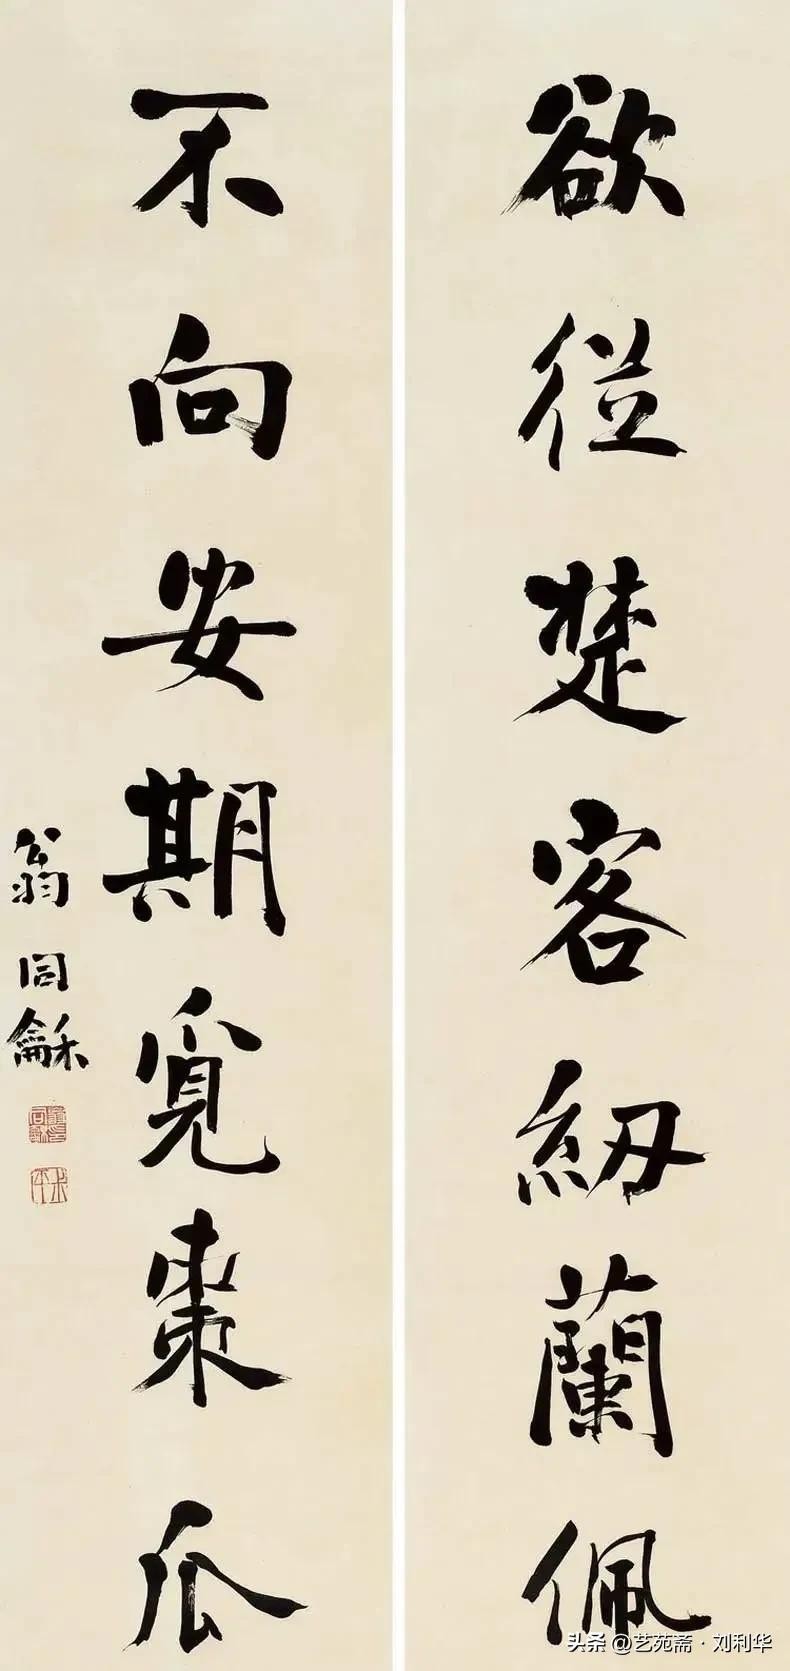 欲從楚客紉蘭佩
不向安期覓棗瓜
翁同龢
叔平
头条 @艺苑斋·刘利华